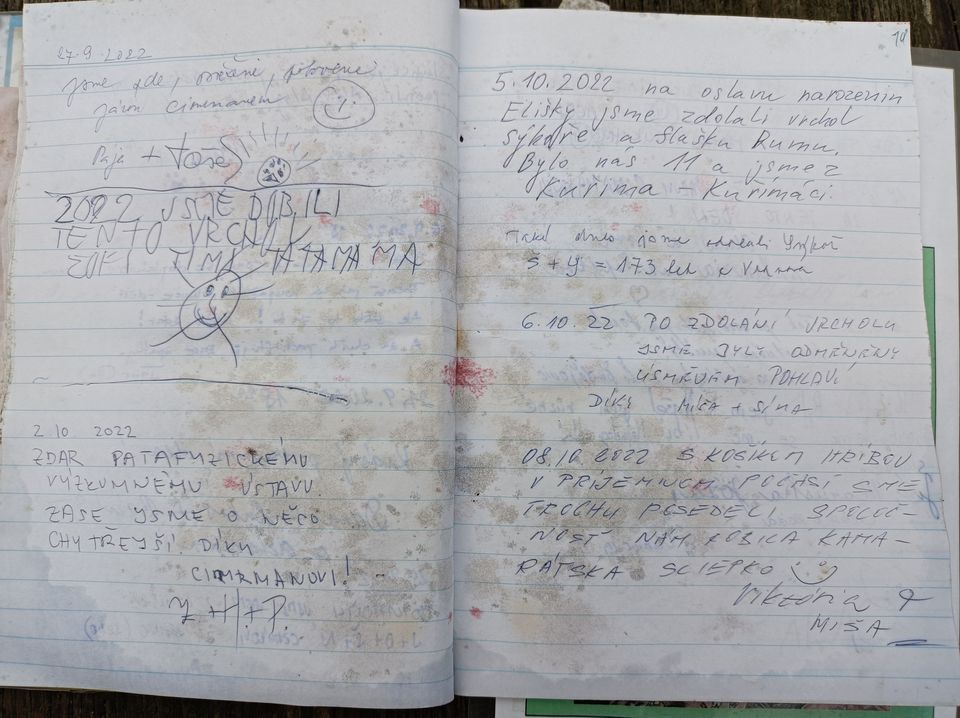 27.9.2022
jsme zde,
Járou Cimrmanem
Pája + Toše
2022 JSME DOBILI
TENTO VRCHOL
TÁTA MÁMA
2.10. 2022
ZDAR PATAFYZICKÉMU
VÝZKUMNÉMU ÚSTAVU.
ZASE JSME O NĚCO
CHYTŘEJŠÍ DÍKY
CIMRMANOVI!
Z + H + P.
19
5.10.2022 na oslavu narozenin
Elišky jsme zdolali vrchol
Sýkoře a flašku Rumu.
Bylo nás 11 a jsme z
Kuřima - Kuřimáci.
Také dnes jsme
S + Y = 173 let
6.10.22 PO ZDOLÁNÍ VRCHOLU
JSME BYLY ODMĚNĚNY
ÚSMĚVEM POHLAVÍ
DÍKY MÍŠA + SIMA
08.10.2022 S KOŠÍKEM HRÍBOV
V PRÍJEMNOM POČASÍ SME
TROCHU POSEDELI SPOLOČ-
NOSŤ NÁM ROBILA KAMA-
RÁTSKA SLIEPKO
Viktória &
MIŠA